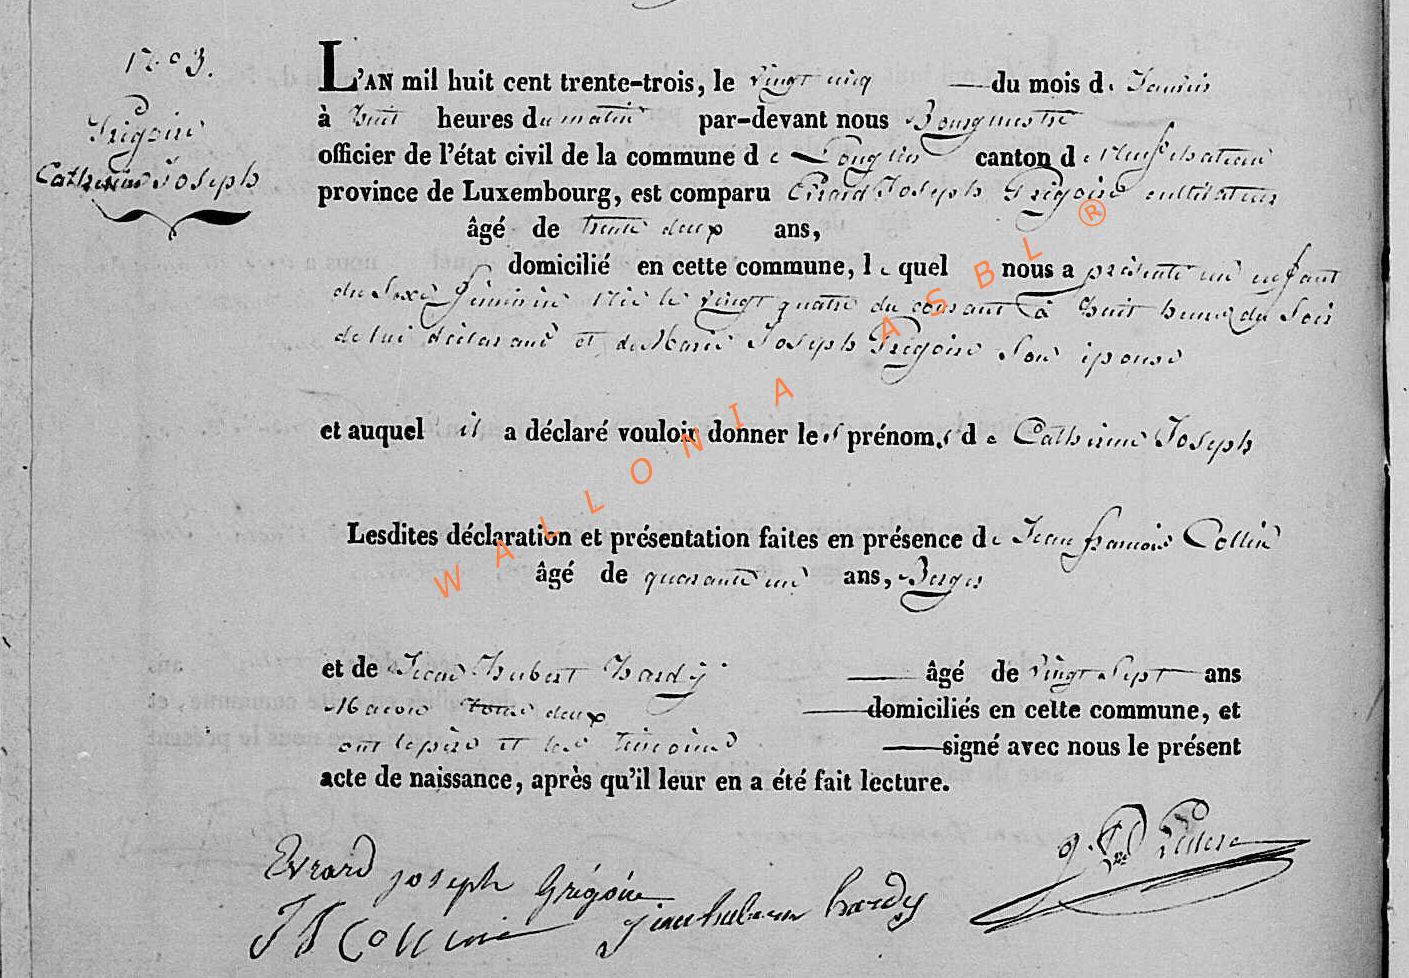 1203.
Grégoire
Catherine Joseph
L'AN mil huit cent trente-trois, le vingt cinq du mois de Janvier
à huit heures du matin par-devant nous Bourgmestre
officier de l'état civil de la commune de Longlier canton de Neufchateau
province de Luxembourg, est comparu Evrard Joseph Grégoire cultivateur
âgé de trente deux ans,
domicilié en cette commune, lequel nous a présenté un enfant
du Sexe féminin née le vingt quatre du courant à huit heures du Soir
de lui déclarant et de Marie Joseph Grégoire Son épouse
et auquel il a déclaré vouloir donner les prénoms de Catherine Joseph
Lesdites déclaration et présentation faites en présence de Jean françois Collin
âgé de quarante un ans, Berger
et de Jean Hubert Hardy âgé de vingt Sept ans
Macon tous deux domiciliés en cette commune, et
ont le père et les témoins signé avec nous le présent
acte de naissance, après qu'il leur en a été fait lecture.
Evrard joseph Grégoire
JF Collin jean hubert hardy
WALLONIA ASBL ®